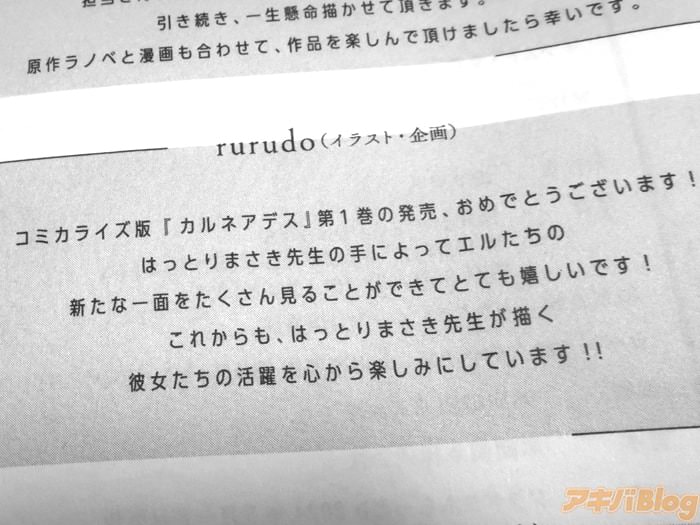 引き続き、一生懸命描かせて頂きます。
原作ラノベと漫画も合わせて、作品を楽しんで頂けましたら幸いです。
rurudo(イラスト・企画)
コミカライズ版『カルネアデス』第1巻の発売、おめでとうございます!
はっとりまさき先生の手によってエルたちの
新たな一面をたくさん見ることができてとても嬉しいです!
これからも、はっとりまさき先生が描く
彼女たちの活躍を心から楽しみにしています!!
アキバBlog